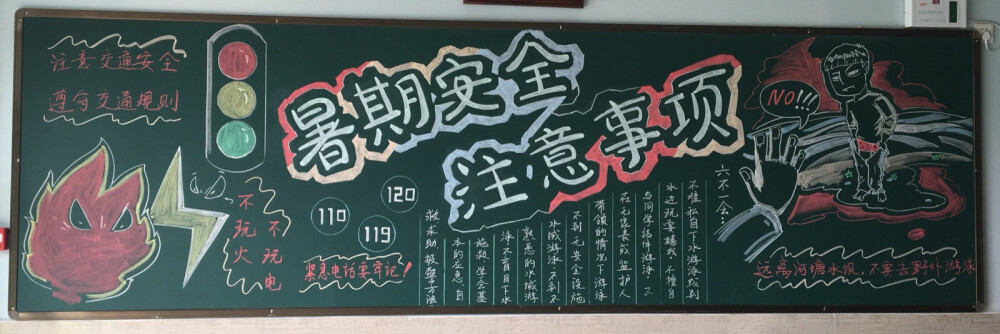 注意交通安全
遵守交通规则
暑期安全
注意事项
NO!!!
不玩火
不玩电
110
119
120
紧急电话要牢记！
六不一会：
不准私自下水游泳或到
水边玩耍嬉戏 不擅自
与同学结伴游泳 不
在无家长或监护人
带领的情况下游泳
不到无安全设施
水域游泳 不到不
熟悉的水域游
泳 不盲目下水
施救 学会基
本的应急、自
救求助报警方法
远离河塘水坝，不要去野外游泳